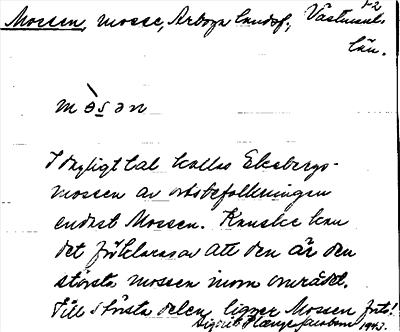 Mossen, mosse, Arboga landsf., Västmanl.
län.
mòsən
I dagligt tal kallas Ekebergs-
mossen av ortsbefolkningen
endast Mossen. Kanske kan
det förklaras av att den är den
största mossen inom området.
Till största delen ligger Mossen
1943.